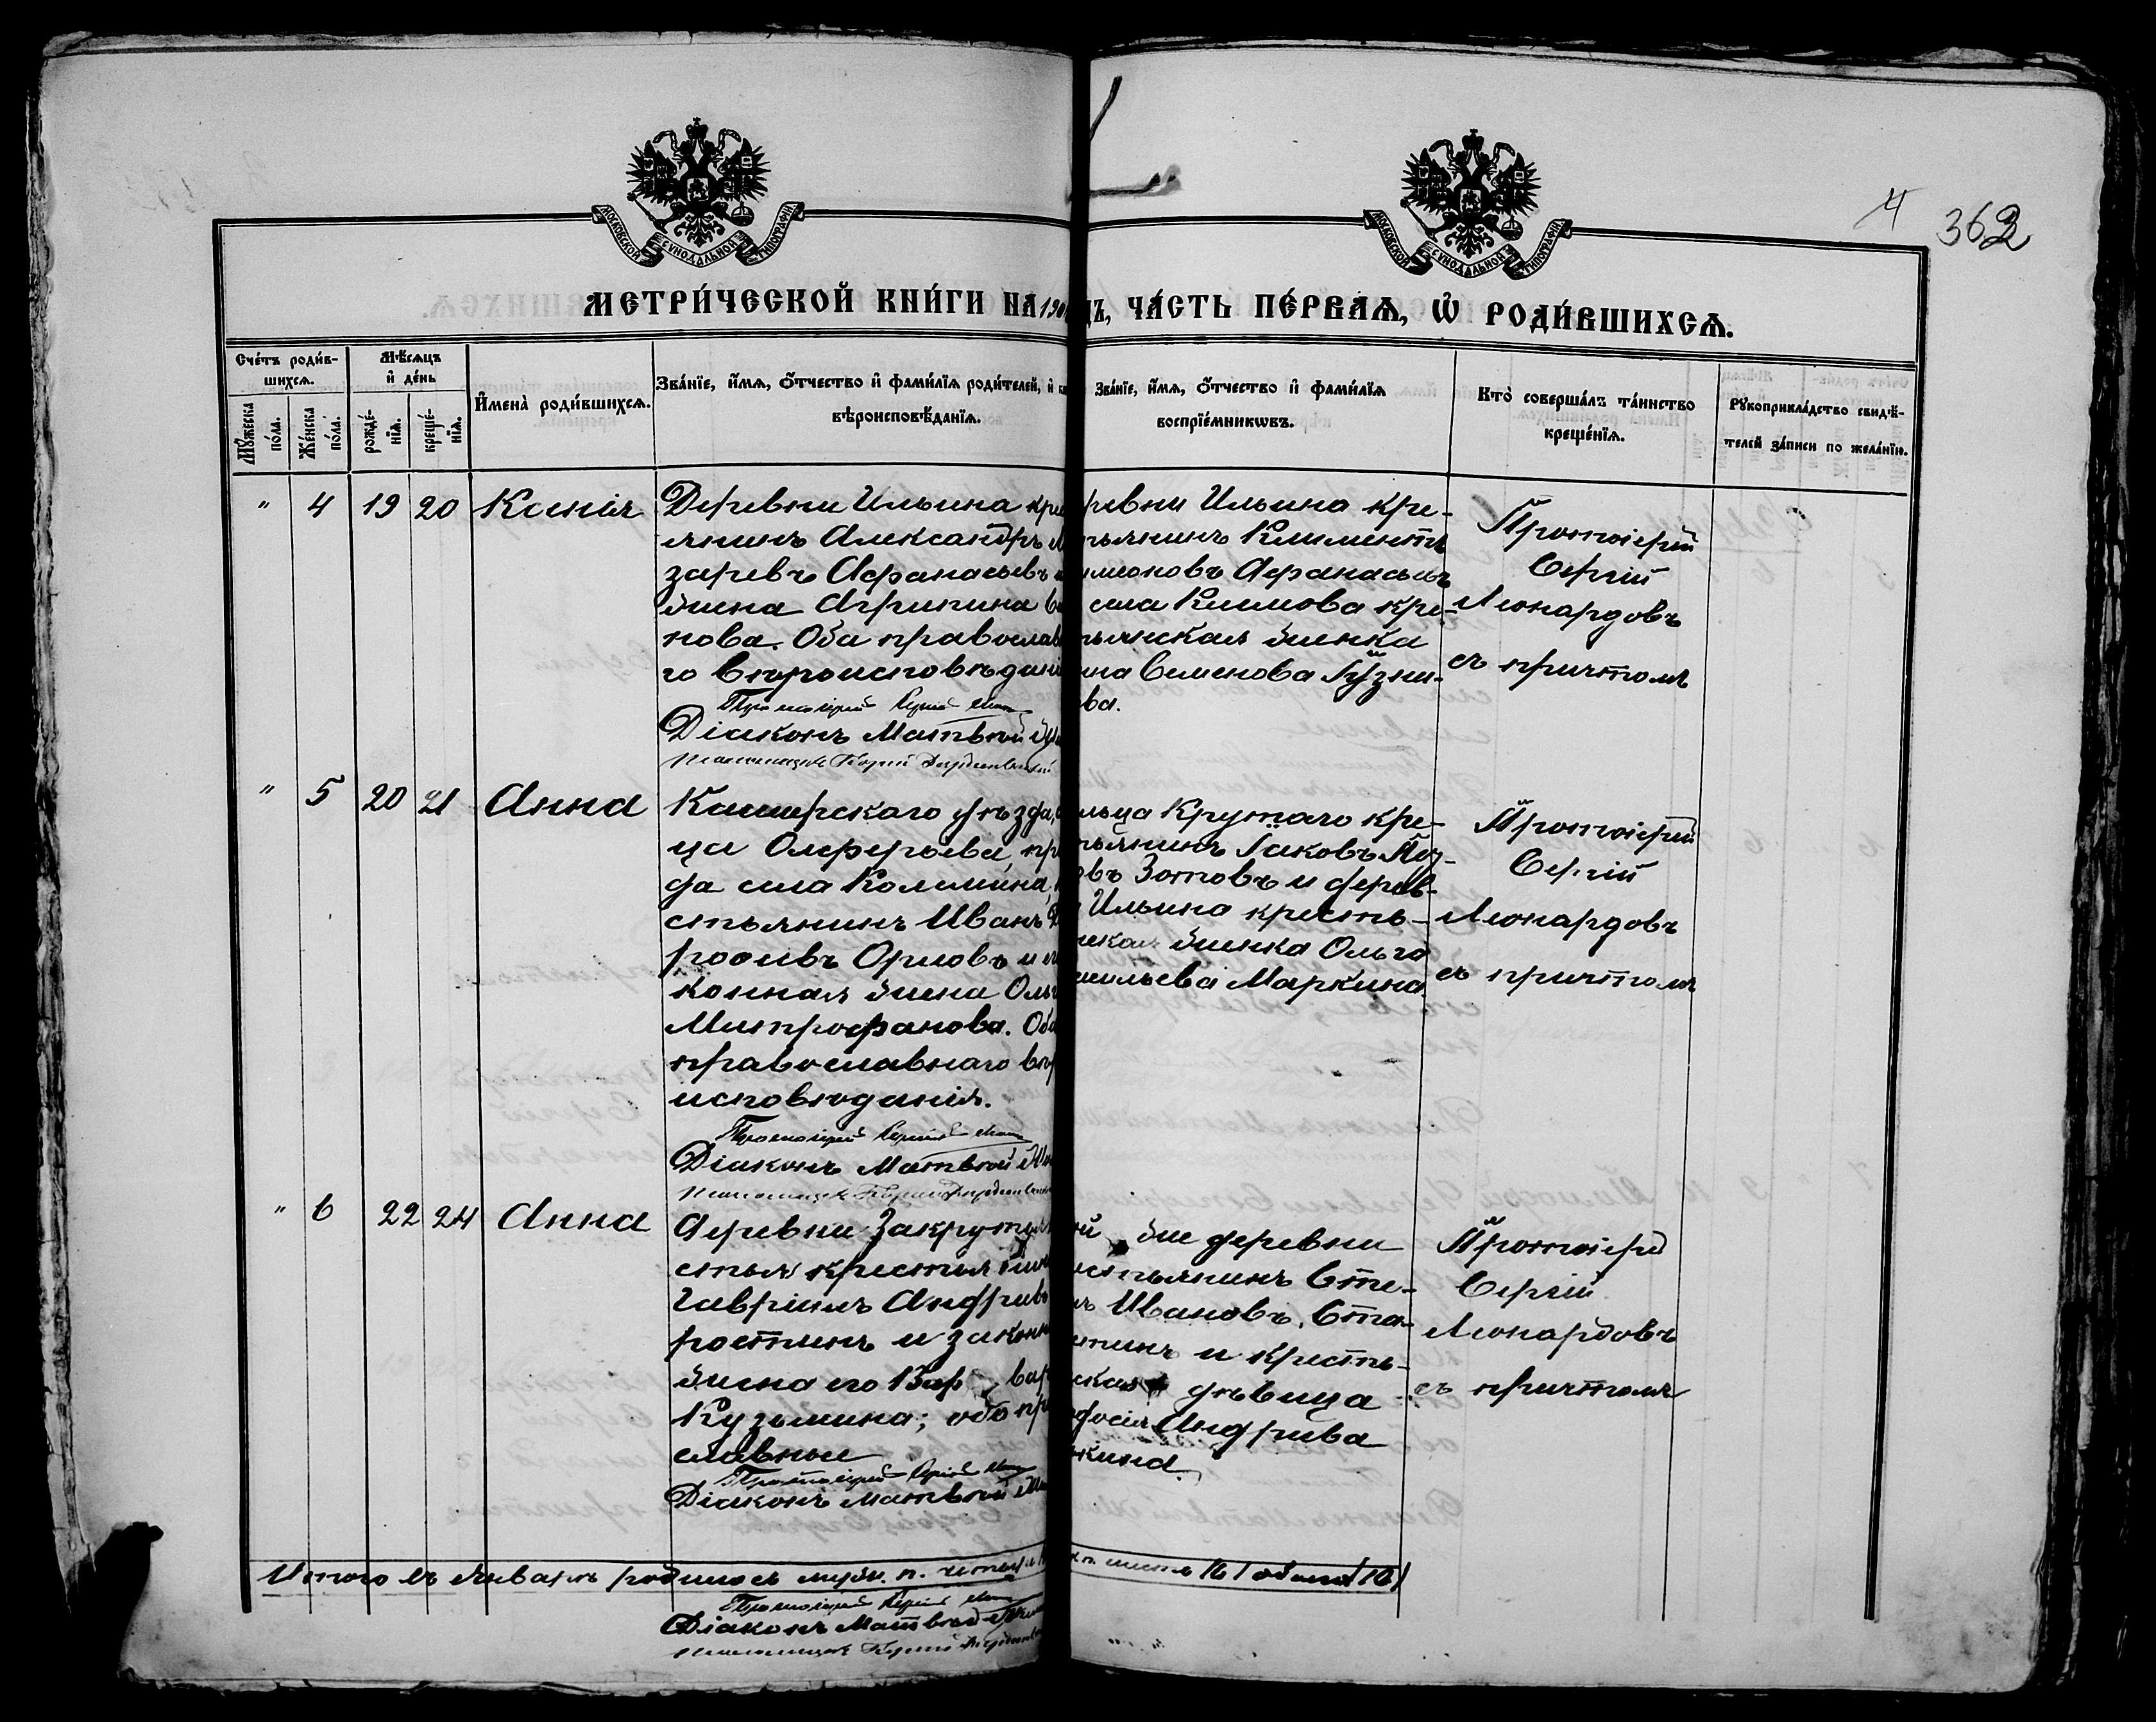 4 362
МОСКОВСКОЙ СѴНОДАЛЬНОЙ ТИПОГРАФІИ
МОСКОВСКОЙ СѴНОДАЛЬНОЙ ТИПОГРАФІИ
МЕТРИ́ЧЕСКОЙ КНИ́ГИ НА 190
ДЪ, ЧА́СТЬ ПЕ́РВАѦ, Ѡ҆ РОДИ́ВШИХСѦ.
Сче́тъ роди́в-
шихсѧ.
Мꙋ́жеска
по́ла.
Же́нска
по́ла.
Мѣ́сѧцъ
и҆ де́нь
рожде́-
нїѧ.
креще́-
нїѧ.
И҆мена̀ роди́вшихсѧ.
Зва́нїе, и҆́мѧ, ѻ҆́тчество и҆ фами́лїѧ роди́телей, и҆
вѣроисповѣ́данїѧ.
Зва́нїе, и҆́мѧ, ѻ҆́тчество и҆ фами́лїѧ
воспрїе́мникѡвъ.
Кто̀ соверша́лъ та́инство
креще́нїѧ.
Рꙋкоприкла́дство свидѣ́-
телей за́писи по жела́нїю.
" 4 19 20 Ксенія
Деревни Ильина кре
янинъ Александръ
заревъ Афанасьевъ
жена Агрипина
нова. Оба православ
го вѣроисповѣдані
Протоіерей Сергій
Діаконъ Матвей
ревни Ильина кре-
тьянинъ Климентъ
имеоновъ Афанасьевъ
села Климова кре-
тьянская женка
на Семенова Кузни-
ва.
Протоіерей
Сергій
Леонардовъ
съ причтомъ
" 5 20 21 Анна
Каширскаго уѣзда,
ца Олферьева, пр
да села Колемина,
стьянинъ Иванъ
рофеевъ Орловъ и
конная жена Оль
Митрофанова. Оба
православнаго вѣр
исповѣданія.
Протоіерей Сергій
Діаконъ Матвей
льца Крутаго кре-
тьянинъ Іаковъ
овъ Зотовъ и дерев-
Ильина кресть-
ская женка Ольга
сильева Маркина.
Протоіерей
Сергій
Леонардовъ
съ причтомъ
" 6 22 24 Анна
Деревни Закрутья
Гавріилъ Андреев
ростинъ и законн
жена его Вар вар
Кузьмина; оба пр
славные
Протоіерей Сергій
Діаконъ Матвей
же деревни
естьянинъ Сте-
нъ Ивановъ Ста-
стинъ и кресть-
ская дѣвица
одосія Андреева
кина.
Протоіерей
Сергій
Леонардовъ
съ причтомъ
Итого въ Январѣ родилось муж. п. четыр
п. шесть /6/ обоего /10/
Протоіерей Сергій
Діаконъ Матвей